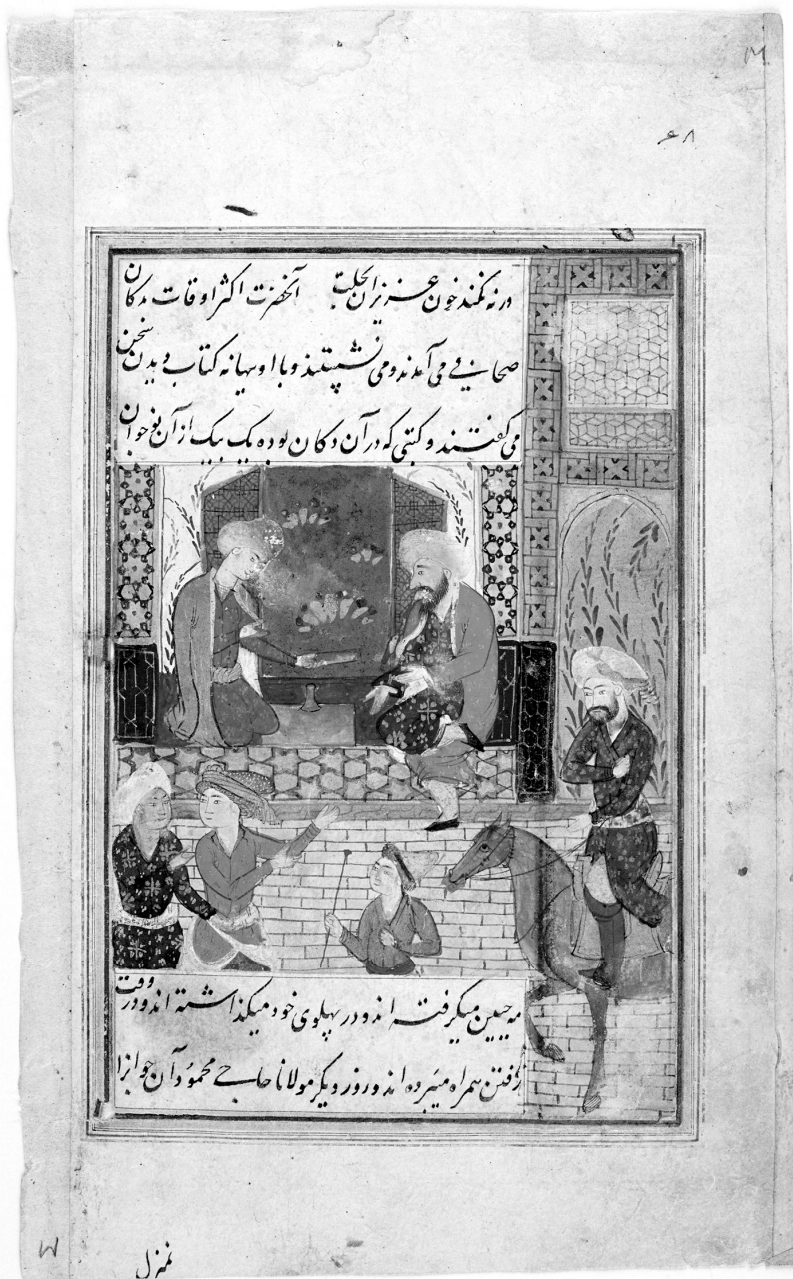 ۶۸
ورنه نکنند خون عزیزان بحلت آنحضرت اکثر اوقات بدکان
صحافی می آمدند و می نشستند و با او ببهانه کتاب دیدن سخن
می گفتند و کتبی که در آن دکان بوده یک بیک از آن نوجوان
مه جبین میگرفته اند و در پهلوی خود میگذاشته اند و در وقت
رفتن همراه میبرده اند و روز دیگر مولانا حاجی محمود آن جوانرا
بمنزل